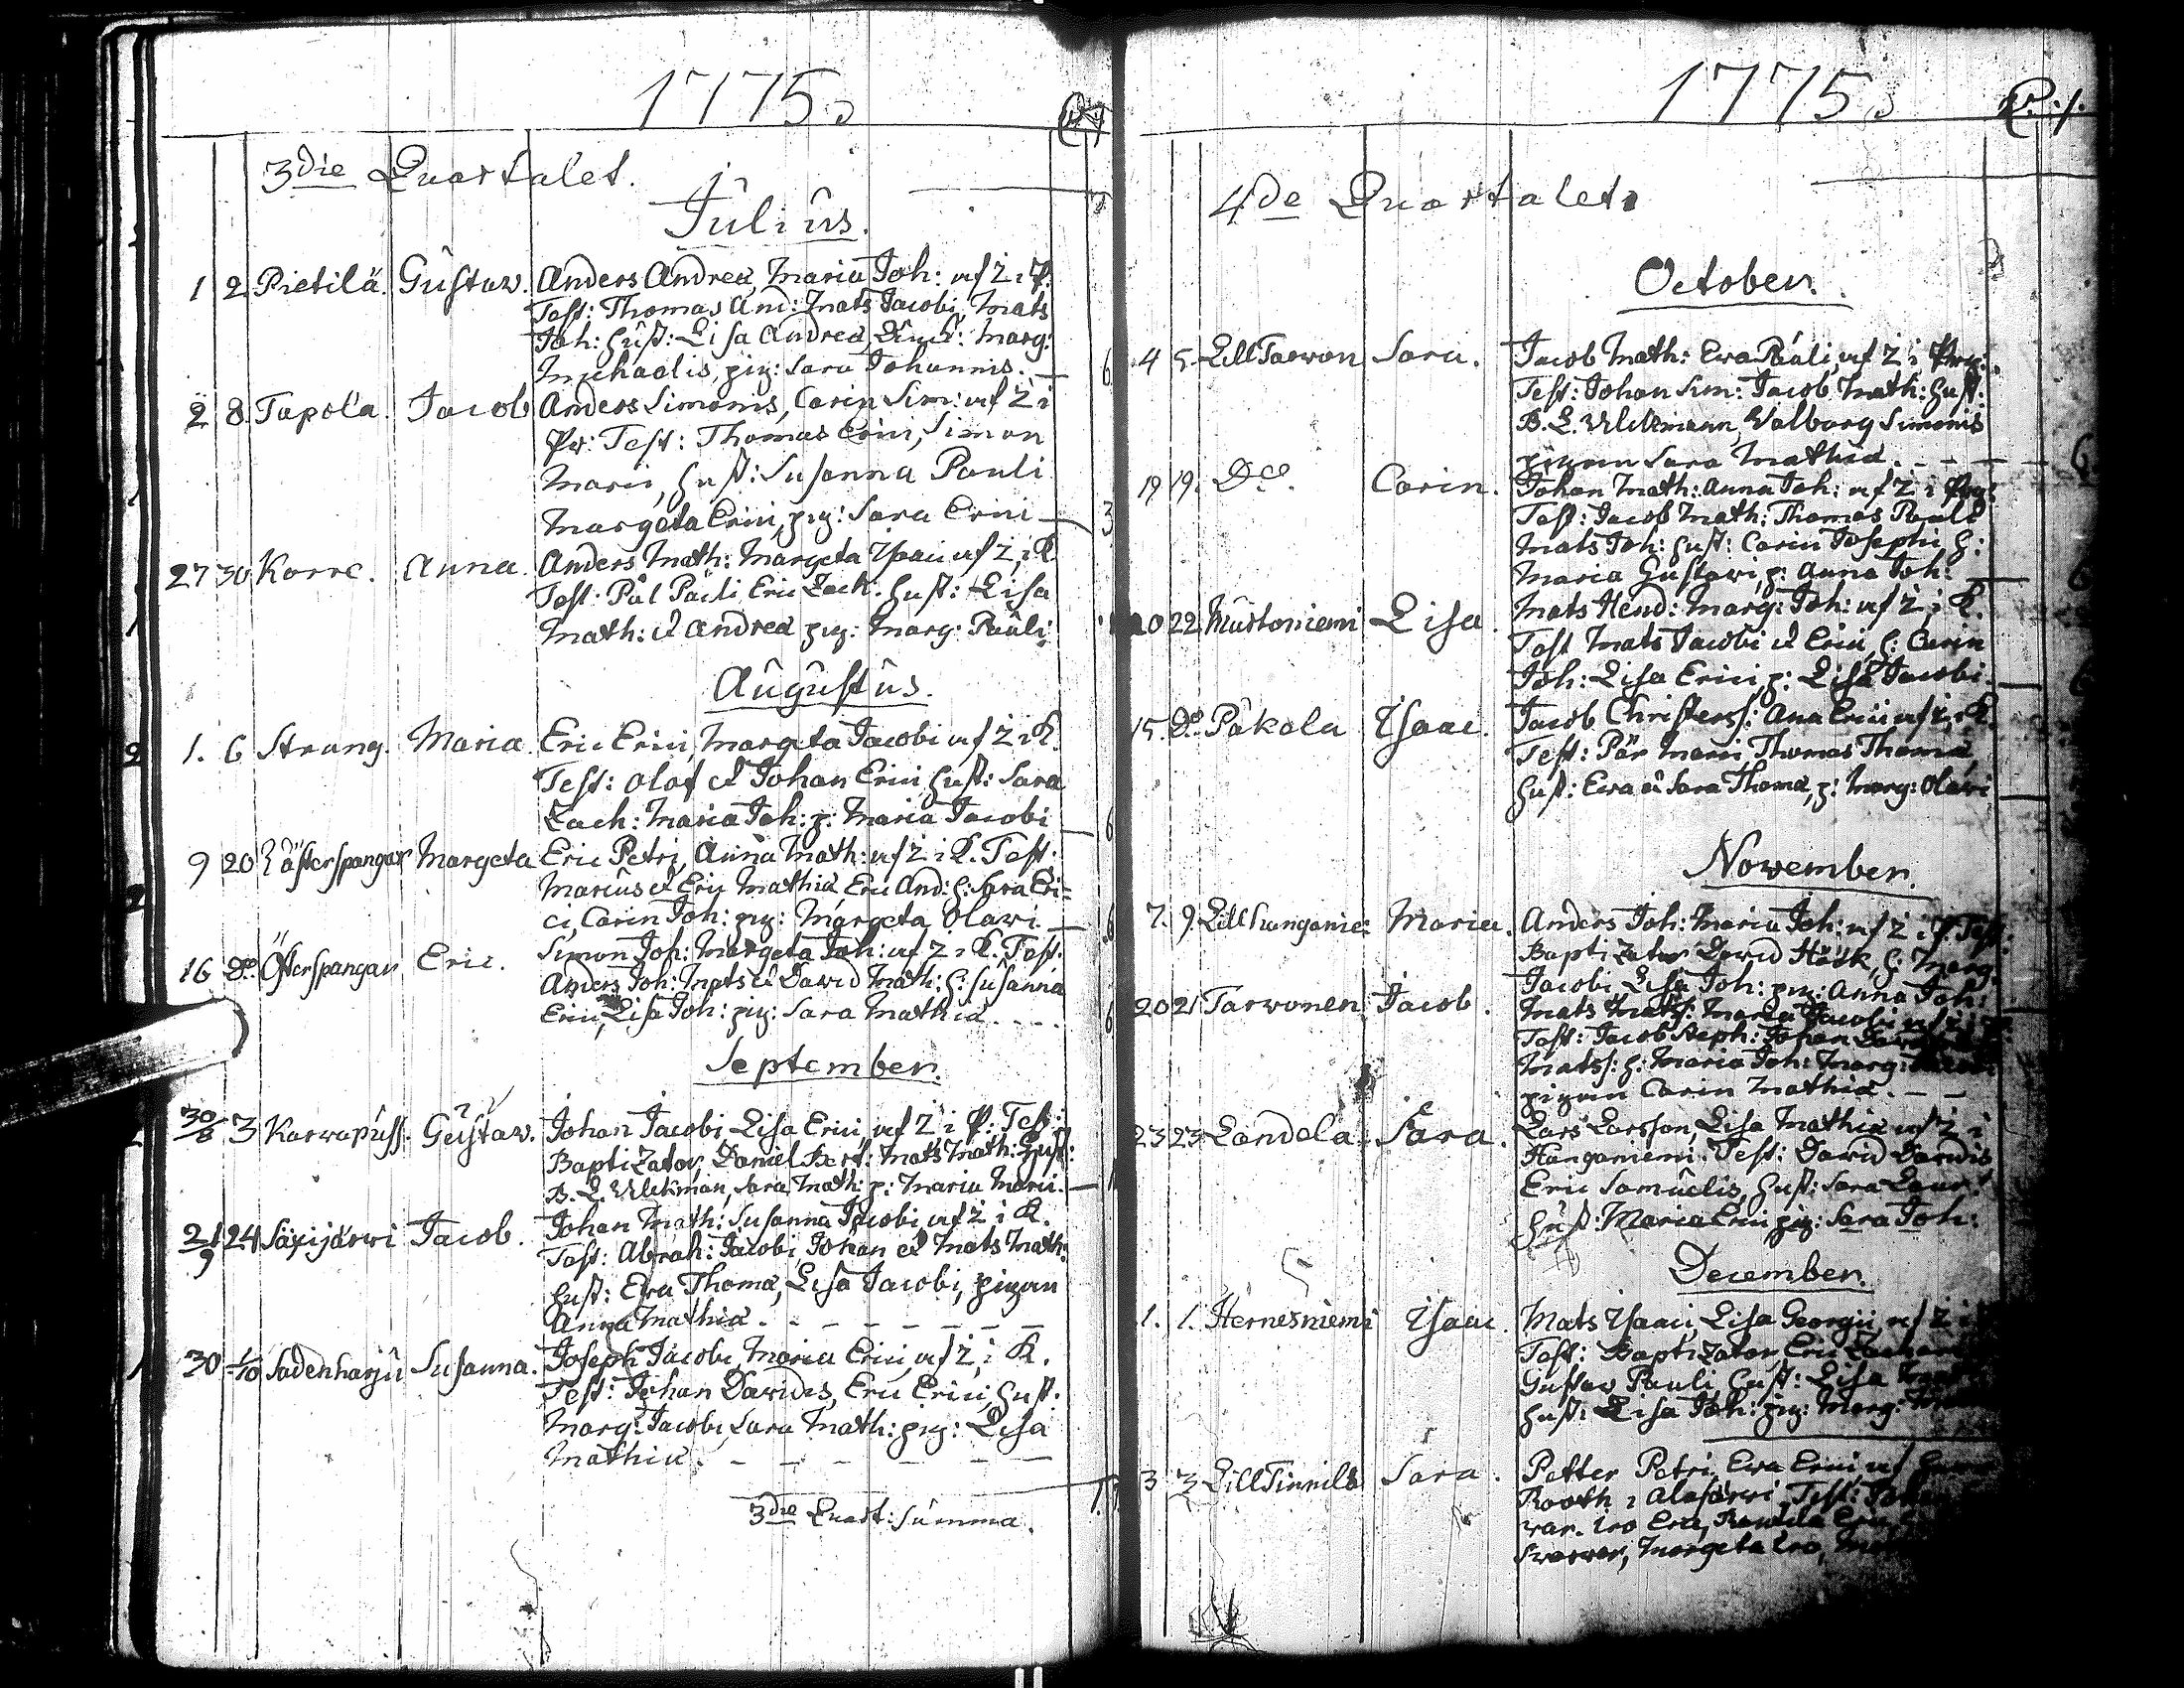 1775
3die Quartalet.
Julius.
1 2. Pietilä. Gustav. Anders Andreæ, Maria Joh: uf Z i P.
Test: Thomas And: Mats Jacobi, Mats
Joh: Hust: Lisa Andreæ, Marg:
Michaelis, pig: Sara Johannis.
2 8. Tapola. Jacob Anders Simonis, Carin Sim: uf Z i
Pr: Test: Thomas Erici, Simon
Marci, Hust: Susanna Pauli
Margeta Erici, pig: Sara Erici 3
27 30 Korre. Anna. Anders Math: Margeta Isaaci uf Z, i K
Test: Pål Pauli Eric Zach: Hust: Lisa
Math: et Andreæ pig: Marg: Pauli
Augustus.
1. 6 Strang. Maria. Eric Erici, Margeta Jacobi uf Z i K.
Test: Olof et Johan Erici Hust: Sara
Zach: Maria Joh: p: Maria Jacobi 6
9 20 Östersspangar Margeta Eric Petri, Anna Math: uf Z i K. Test:
Marcus et Eric Mathiæ, Eric And: h: Sara Eri=
ci, Carin Joh: pig: Margeta Olavi. 6
16 Do. Östersspangar Eric. Simon Joh: Margeta Joh: uf Z i K. Test:
Anders Joh: Mats et David Math: h: Susanna
Erici, Lisa Joh: pig: Sara Mathiæ 6
September.
30/8 3 Karwapuss. Gustav. Johan Jacobi, Lisa Erici uf Z i P: Test:
Baptizator, Daniel Bert: Mats Math: Hust:
B. L. Ulckman, Sara Math: p: Maria Marci.
21/9 24 Säxijärwi Jacob. Johan Math: Susanna Jacobi uf Z i K.
Test: Abrah: Jacobi, Johan et Mats Math:
Hust: Ewa Thomæ, Lisa Jacobi, pigan
Anna Mathiæ.
30 1/10 Sadenharju Susanna. Joseph Jacobi, Maria Erici, uf Z, i K.
Test: Johan Davidis, Eric Erici, Hust:
Marg: Jacobi, Sara Math: pig: Lisa
Mathiæ.
3die Quart: Summa.
1775
4de Quartalet
October.
4 5. Lill Tarwon Sara. Jacob Math: Ewa Pauli, uf Z i
Test: Johan Sim: Jacob Math: Hust:
B. L. Ulckmann, Walborg Simonis
pigan Sara Mathiæ.
19 19. Do. Carin. Johan Math: Anna Joh: uf Z i
Test: Jacob Math: Thomas Pauli
Mats Joh: Hust: Carin Josephi h:
Maria Gustavi, p: Anna Joh:
20 22 Mustoniemi Lisa. Mats Hend: Marg: Joh: uf Z, i K.
Test Mats Jacobi et Erici, h: Carin
Joh: Lisa Erici p: Lisa Jacobi.
15. Do. Påkola Isaac. Jacob Christerss: Ana Erici uf Z, i K.
Test: Pär Marci, Thomas Thomæ,
Hust: Ewa et Sara Thomæ, p: Marg: Olavi
November.
7. 9. Lillhunganie: Maria. Anders Joh: Maria Joh: uf Z i P. Test:
Baptizator David Höök, h: Marg:
Jacobi Lisa Joh: pig: Anna Joh:
20 21 Tarwonen Jacob. Mats Matss: Maria Jacobi uf Z i
Test: Jacob Steph: Johan
Matss: h: Maria Joh: Marg:
pigan Carin Mathiæ.
23 23 Landola. Sara. Lars Larsson, Lisa Mathiæ uf Z i
Hunganiemi. Test: David Davidis
Eric Samuelis, Hust: Sara
Hust: Maria Erici pig: Sara Joh:
December.
1. 1. Hernesniemi Isaac. Mats Isaaci, Lisa Georgii, uf Z i
Test: Baptizator Eric
Gustav Pauli, Hust: Lisa
Hust: Lisa Joh: pig: Marg:
3 3 Lill Tinnilä Sara. Petter Petri, Ewa Erici uf
Rooth i Alajärwi, Test:
Iso Eric,
Margeta Iso,